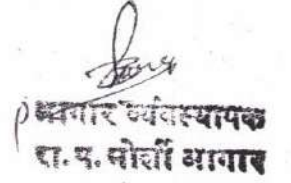 आगार व्यवस्थापक
रा. प. मोर्शी आगार